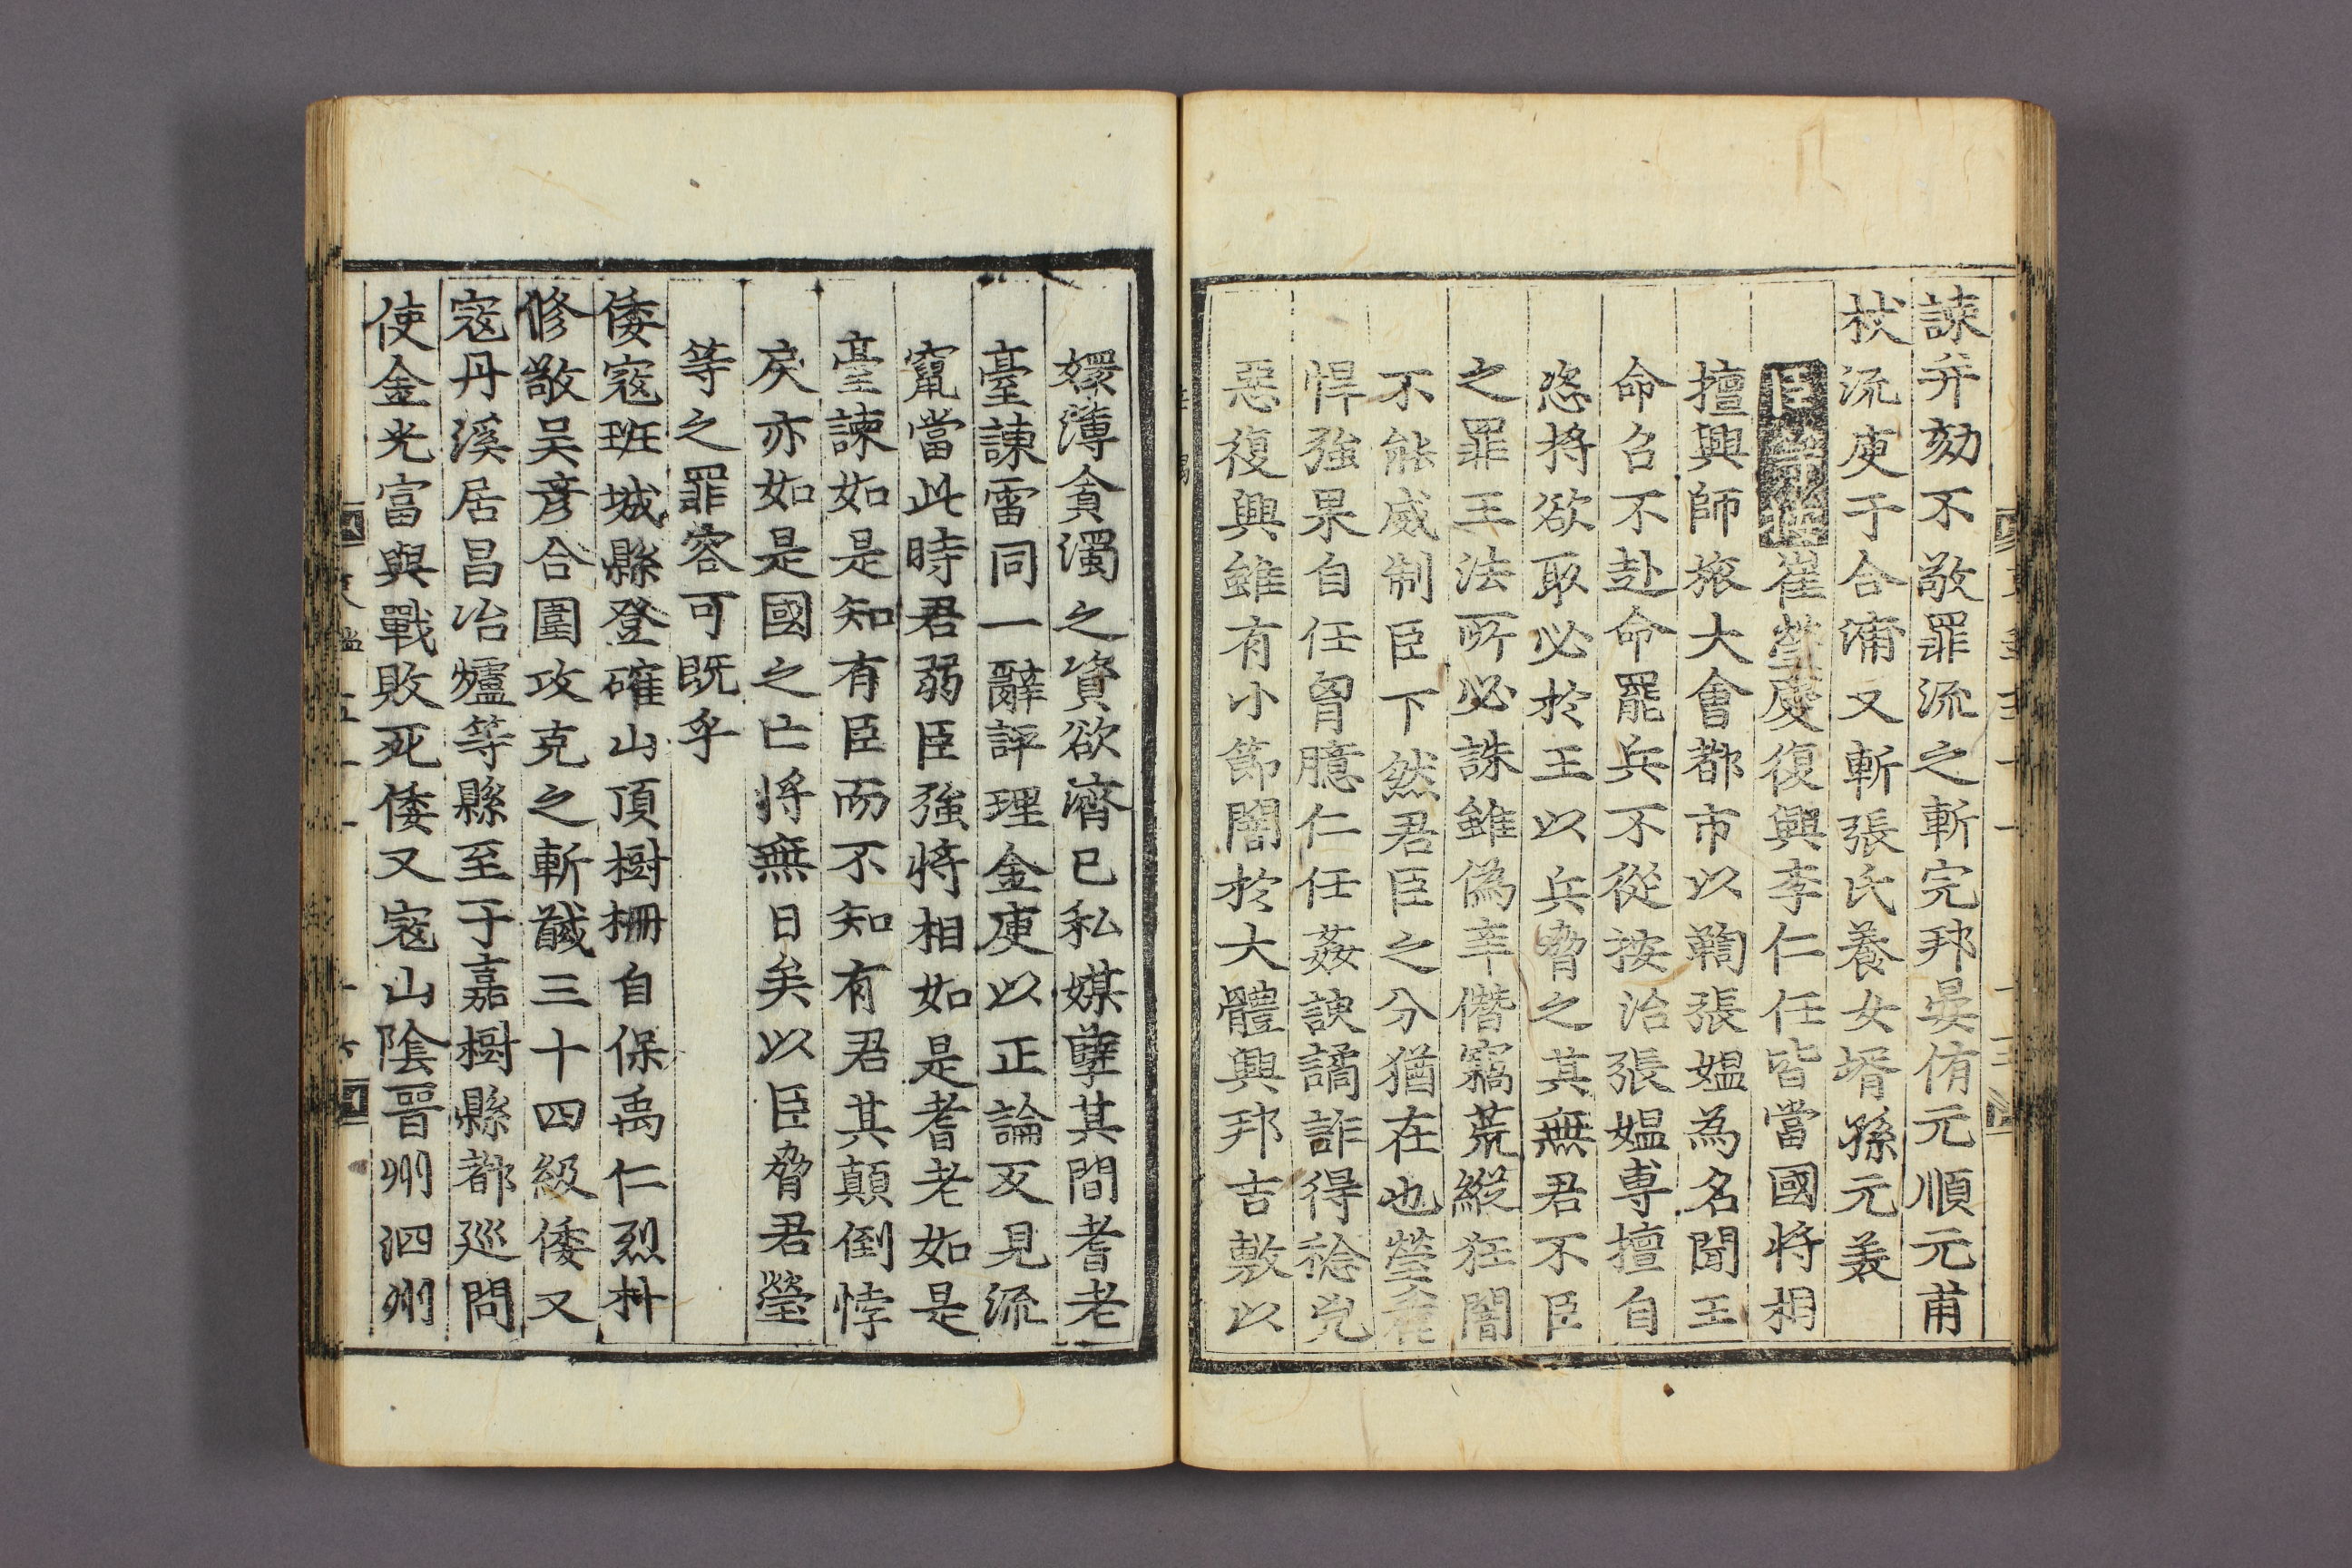 諫幷劾不敬罪流之斬完邦晏侑元順元甫
杖流庾于合浦又斬張氏養女壻孫元美
臣等按崔瑩慶復興李仁任皆當國將相
擅興師旅大會都市以鞫張媼為名聞王
命召不赴命罷兵不從按治張媼專擅自
恣將欲取必於王以兵脅之其無君不臣
之罪王法所必誅雖僞辛僭竊荒縱狂闇
不能威制臣下然君臣之分猶在也瑩麤
悍強果自任胷臆仁任姦諛譎詐得稔兇
惡復興雖有小節闇於大體興邦吉敷以
嬛薄貪濁之資欲濟已私媒孽其間耆老
臺諫雷同一辭評理金庾以正論反見流
竄當此時君弱臣強將相如是耆老如是
臺諫如是知有臣而不知有君其顛倒悖
戾亦如是國之亡將無日矣以臣脅君瑩
等之罪容可既乎
倭寇班城縣登確山頂樹柵自保禹仁烈朴
修敬吳彥合圍攻克之斬馘三十四級倭又
寇丹溪居昌冶爐等縣至于嘉樹縣都巡問
使金光富與戰敗死倭又寇山隂晉州泗州